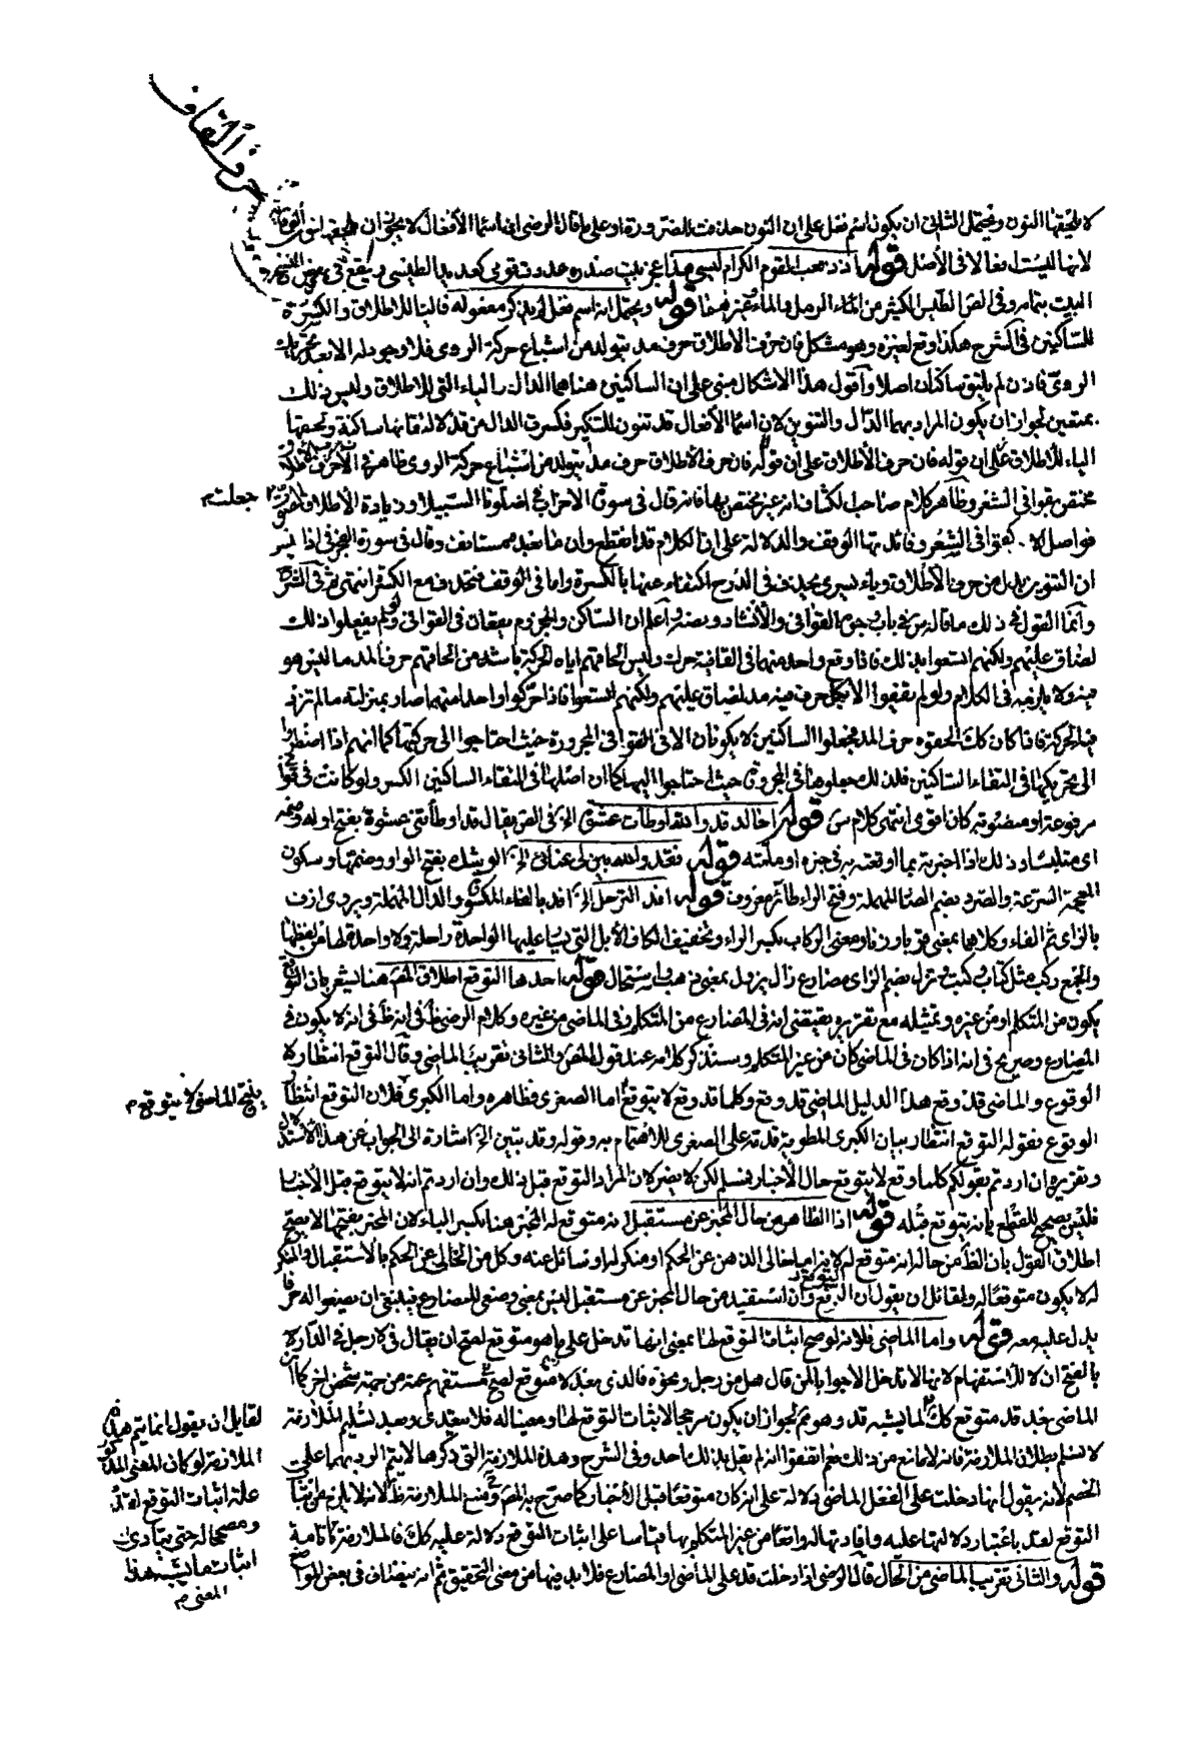 حرف القاف
لا تلحقها النون ويحتمل الثاني ان يكون اسم فعل على ان النون حذفت للضرورة او على ما قال الرضي ان اسماء الأفعال لا يجوز ان تلحقها نون الوقاية
لانها ليست افعالا في الأصل قوله اذ ذهب القوم الكرام ليسي هذا عجز بيت صدره عددت قومي كعديد الطيس ويقع في بعض النسخ
البيت بتمامه وفي الطيس الكثير من الماء الرمل والماء وغيرهما قوله ويحتمل انه اسم فعل لم يذكر مفعوله فالياء للاطلاق والكسرة
للساكنين في الشرح هكذا وقع لغيره وهو مشكل فان حرف الاطلاق حرف مد يتولد من اشباع حركة الروي فلا وجود له الا بعد تحريك
الروي فاذن لم يلتق ساكنان اصلا وأقول هذا الاشكال مبني على ان الساكنين هنا هما الدال والياء التي للاطلاق وليس ذلك
بمتعين لجواز ان يكون المراد بهما الدال والتنوين لان اسماء الأفعال قد تنون للتنكير فكسرت الدال من قد لالتقائها ساكنة ولحقتها
الياء للاطلاق على ان قوله فان حرف الأطلاق حرف مد يتولد من اشباع حركة الروي ظاهر في ان حرف الاطلاق
مختص بقوافي الشعر وظاهر كلام صاحب الكشاف انه غير مختص بها فانه قال في سورة الاحزاب في اضلونا السبيلا وزيادة الأطلاق الصوت جعلت
فواصل الآي كقوافي الشعر وفائدتها الوقف والدلالة على ان الكلام قد انقطع وان ما بعده مستأنف وقال في سورة الفجر في اذا يسر
ان التنوين بدل من حرف الأطلاق وياء يسري تحذف في الدرج اكتفاء عنها بالكسرة واما في الوقف فتحذف مع الكسرة انتهى
وأنما القول في ذلك ما قاله س في باب وجوه القوافي والأنشاد ونصه واعلم ان الساكن والمجزوم يقعان في القوافي ولو لم يفعلوا ذلك
لضاق عليهم ولكنهم اتسعوا بذلك فاذا وقع واحد منهما في القافية حرك وليس الحاقهم اياه الحركة باشد من الحاقهم حرف المد ما ليس هو
فيه ولا يلزمه في الكلام ولو لم يقفوا الا بكل حرف فيه مد لضاق عليهم ولكنهم اتسعوا فاذا حركوا واحدا منهما صار بمنزلة ما لم تزل
فيه الحركة فاذا كان كذلك الحقوه حرف المد فجعلوا الساكنين لا يكونان الا في القوافي المجرورة حيث احتاجوا الى حركتها كما انهم اذا اضطروا
الى تحريكها في التقاء الساكنين فلذلك جعلوها في المجرورة حيث احتاجوا اليها كما ان اصلها في التقاء الساكنين الكسر ولو كانت في قواف
مرفوعة او منصوبة كان اقوى انتهى كلام س قوله اخالد قد والله اوطأت عشوة الخ في يقال قد اوطأتني عشوة بفتح اوله وضمه
اي متلبسا وذلك اذا اخبرته بما اوقعته به في حيرة او ملمة قوله فقد والله بين لي عنائي الخ الوشك بفتح الواو وضمها وسكون
المعجمة السرعة والصرد بضم الصاد المهملة وفتح الراء طائر معروف قوله افد الترحل الخ افد بالفاء المكسورة والدال المهملة ويروى ازف
بالزاي ثم الفاء وكلاهما بمعنى قرب ومعنى الركاب بكسر الراء وتخفيف الكاف الأبل التي يسار عليها الواحدة راحلة ولا واحدة لها من لفظها
والجمع ركب مثل كتاب وكتب وتزل بضم الزاي مضارع زال يزول بمعنى ذهب وارتحال قوله احدها التوقع اطلاق هنا يشعر بان التوقع
يكون من المتكلم او من غيره وتمثيله مع تقريره يقتضي انه في المضارع من المتكلم وفي الماضي من غيره وكلام الرضي في انه لا يكون في
المضارع وصريح في انه اذا كان في الماضي كان من غير المتكلم وسنذكر كلامه عند قول والثاني تقريب الماضي وقال التوقع انتظار
الوقوع والماضي قد وقع هذا الدليل الماضي قد وقع وكلما قد وقع لا يتوقع اما الصغرى فظاهره واما الكبرى فلان التوقع انتظار ينتج الماضي لا يتوقع
الوقوع فقوله التوقع انتظار بيان الكبرى المطوية قدمه على الصغرى للأهتمام به وقوله وقد تبين الخ اشارة الى الجواب عن هذا الأستدلال
وتقريره ان اردتم بقولكم كلما وقع لا يتوقع حال الأخبار فمسلم لكن لا يضر لان المراد التوقع قبل ذلك وان اردتم انه لا يتوقع قبل الأخبار
فليس بصحيح للقطع بانه يتوقع قبله قوله اذ الظاهر من حال المخبر عن مستقبل انه متوقع له المخبر هنا بكسر الباء لان المخبر بفتحها لا يصح
اطلاق القول بان الظ من حاله انه متوقع له لانه اما خالي الذهن عن الحكم او منكر له او سائل عنه وكل من الخالي عن الحكم بالاستقبال والمنكر
له لا يكون متوقعا له ولقائل ان يقول ان التوقع وان استفيد من حال المخبر عن مستقبل ليس بمعنى وضعي للمضارع فينبغي ان يضعوا له حرفا
يدل عليه معه قوله واما الماضي فلانه لو صح اثبات التوقع لها بمعنى انها تدخل على ما هو متوقع لصح ان يقال في لا رجل في الدار
بالفتح ان لا للأستفهام لانها لا تدخل الا جوابا لمن قال هل من رجل ونحوه فالذي بعد لا مستفهم عنه من جهة شخص اخر كما ان
الماضي بعد قد متوقع كذلك لجواز ان يكون مرجحا لاثبات التوقع لها ومعنيا له فلا يتعدى وبعد تسليم الملازمة لقايل ان يقول انما يتم هذه
لا نسلم بطلان الملازمة فانه لا مانع من ذلك نعم اتفقوا انه لم يقل بذلك احد وفي الشرح وهذه الملازمة التي ذكرها لا يتم الرد بهما على الملازمة لو كان المعنى المذكور
الخصم لانه يقول انها دخلت على الفعل الماضي دلالة على انه كان متوقعا قبل الأخبار كما صرح به ومنع الملازمة ظ لانه لا يلزم من علة اثبات التوقع لقد
التوقع لقد باعتبار دلالتها عليه وافادتها له واقعا من غير المتكلم بها قياسا على اثبات التوقع دلالة عليه كذلك فالملازمة كاملة ومصححا له حتى يتأدى
قوله والثاني تقريب الماضي من الحال قال الرضي اذا دخلت قد على الماضي او المضارع فلا بد فيها من معنى التحقيق ثم انه ينضاف في بعض المواضع اثبات ما يشبه هذا
المعنى